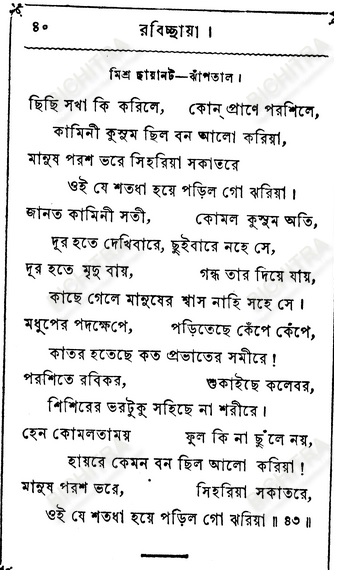 ৪০
রবিচ্ছায়া ।
মিশ্র ছায়ানট—ঝাঁপতাল ।
ছিছি সখা কি করিলে, কোন্ প্রাণে পরশিলে,
কামিনী কুসুম ছিল বন আলো করিয়া,
মানুষ পরশ ভরে সিহরিয়া সকাতরে
ওই যে শতধা হয়ে পড়িল গো ঝরিয়া ।
জানত কামিনী সতী, কোমল কুসুম অতি,
দূর হতে দেখিবারে, ছুইবারে নহে সে,
দূর হতে মৃদু বায়, গন্ধ তার দিয়ে যায়,
কাছে গেলে মানুষের শ্বাস নাহি সহে সে ।
মধুপের পদক্ষেপে, পড়িতেছে কেঁপে কেঁপে,
কাতর হতেছে কত প্রভাতের সমীরে !
পরশিতে রবিকর, শুকাইছে কলেবর,
শিশিরের ভরটুকু সহিছে না শরীরে ।
হেন কোমলতাময় ফুল কি না ছুঁলে নয়,
হায়রে কেমন বন ছিল আলো করিয়া !
মানুষ পরশ ভরে, সিহরিয়া সকাতরে,
ওই যে শতধা হয়ে পড়িল গো ঝরিয়া ॥ ৪৩ ॥
BICHITRA